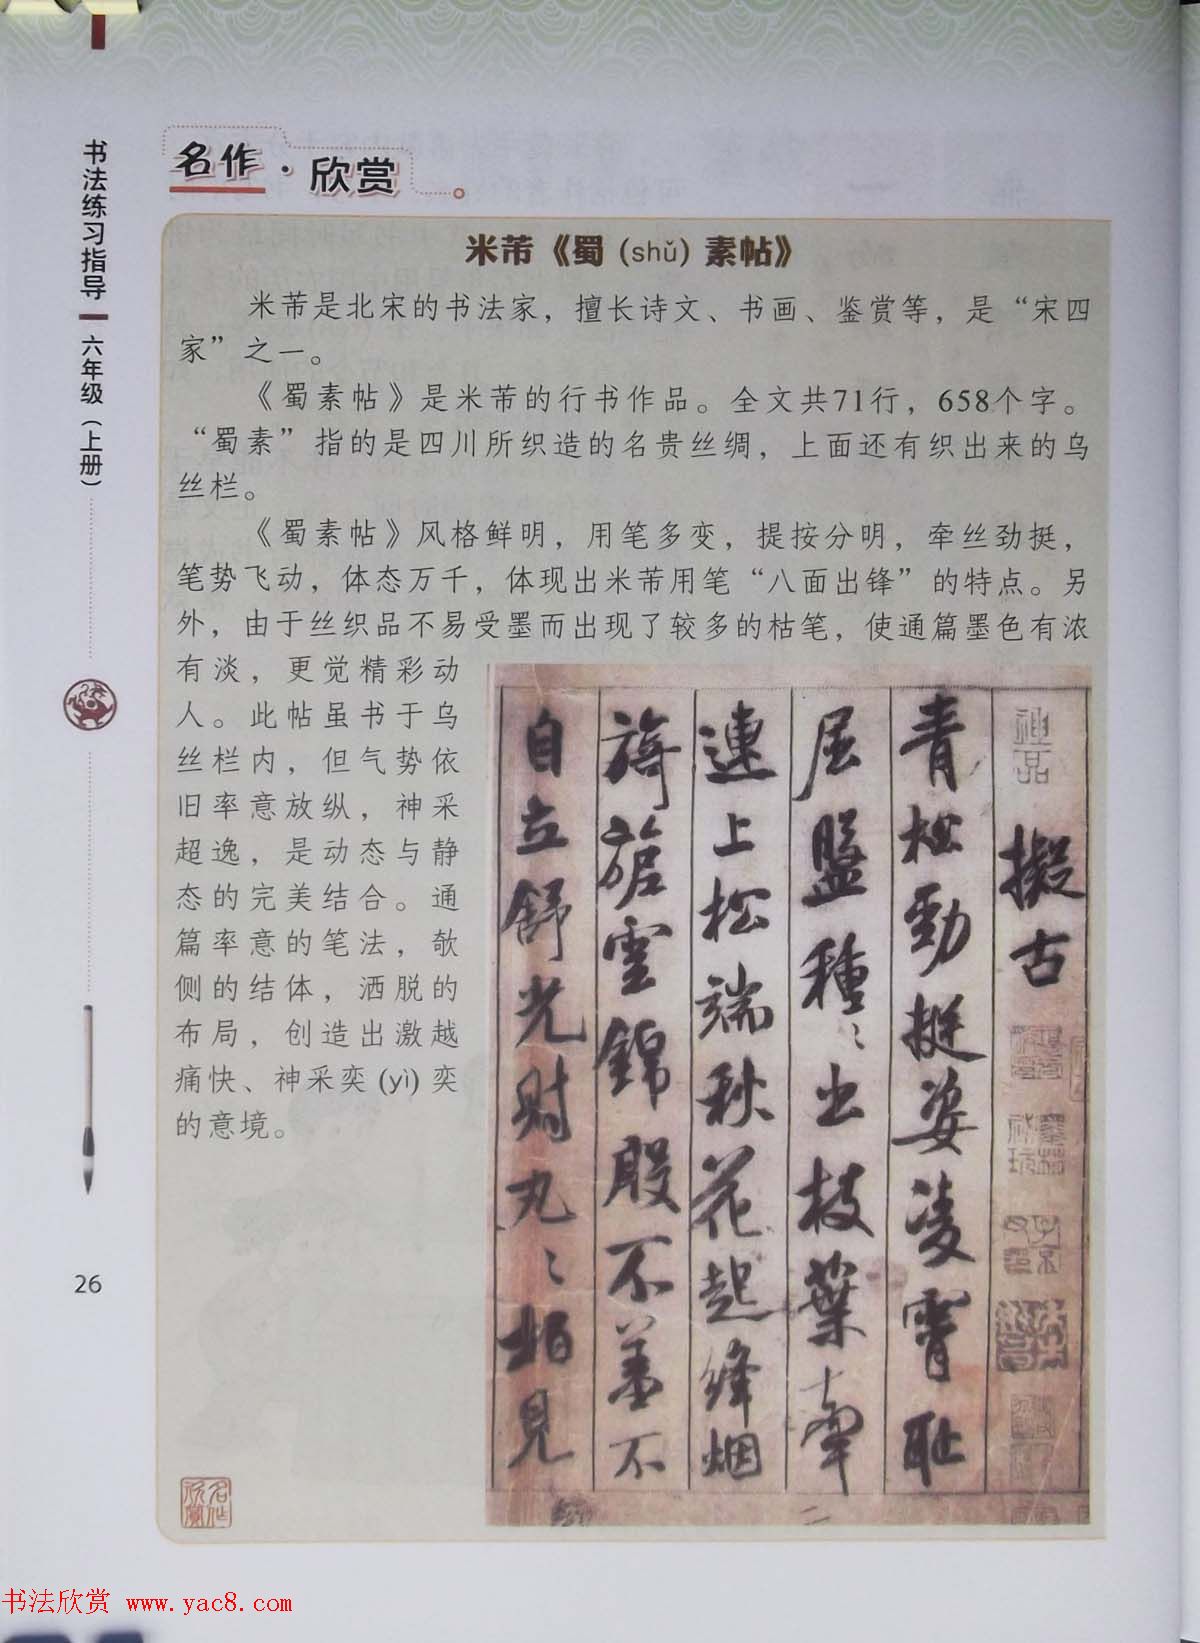 书法练习指导
六年级（上册）
26
名作·欣赏
米芾《蜀（shǔ）素帖》
米芾是北宋的书法家，擅长诗文、书画、鉴赏等，是“宋四
家”之一。
《蜀素帖》是米芾的行书作品。全文共71行，658个字。
“蜀素”指的是四川所织造的名贵丝绸，上面还有织出来的乌
丝栏。
《蜀素帖》风格鲜明，用笔多变，提按分明，牵丝劲挺，
笔势飞动，体态万千，体现出米芾用笔“八面出锋”的特点。另
外，由于丝织品不易受墨而出现了较多的枯笔，使通篇墨色有浓
有淡，更觉精彩动
人。此帖虽书于乌
丝栏内，但气势依
旧率意放纵，神采
超逸，是动态与静
态的完美结合。通
篇率意的笔法，欹
侧的结体，洒脱的
布局，创造出激越
痛快、神采奕(yì)奕
的意境。
神品
擬古
青松勁挺姿凌霄恥
屈盤種〻出枝葉牽
連上松端秋花起絳烟
旖旎雲錦殷不羞不
自立舒光射丸〻柏見
名作欣赏
书法欣赏 www.yac8.com